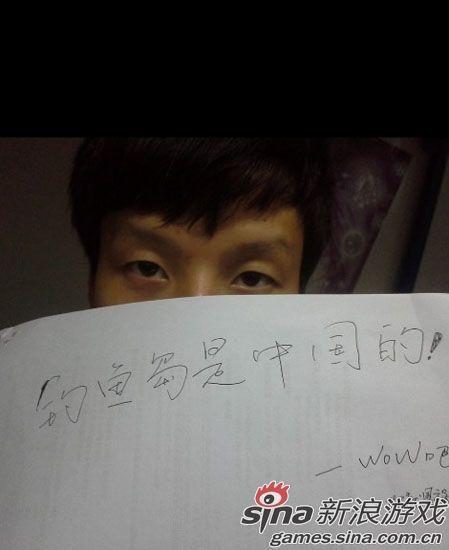 钓鱼岛是中国的!
— WOW吧
sina 新浪游戏
games.sina.com.cn